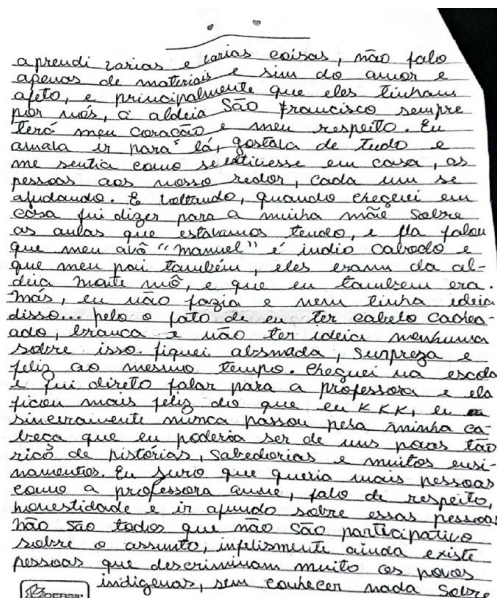 aprendi varias e varias coisas, não falo
apenas de materiais e sim do amor e
afeto, e principalmente que eles tinham
por nós, a aldeia São Francisco sempre
terá meu coração e meu respeito. Eu
amava ir para lá, gostava de tudo e
me sentia como se estivesse em casa, as
pessoas aos nosso redor, cada um se
ajudando. E voltando, quando cheguei em
casa fui dizer para a minha mãe sobre
as aulas que estavamos tendo, e ela falou
que meu avô "Manuel" é indio Caboclo e
que meu pai também, eles eram da al-
deia monte mô, e que eu tambem era.
mas, eu não fazia e nem tinha ideia
disso... pelo o fato de eu ter cabelo cachea-
ado, branca e não ter ideia nenhuma
sobre isso. fiquei abismada, surpreza e
feliz ao mesmo tempo. Cheguei na escola
e fui direto falar para a professora e ela
ficou mais feliz do que eu KKK, eu
sinceramente nunca passou pela minha ca-
beça que eu poderia ser de uns povos tão
rico de histórias, sabedorias e muitos ensi-
namentos. Eu juro que queria mais pessoas
como a professora anne, falo de respeito,
honestidade e ir afundo sobre essas pessoas
não são todos que não são participativo
sobre o assunto, infelismente ainda existe
pessoas que descriminam muito os povos
indigenas, sem conhecer nada sobre